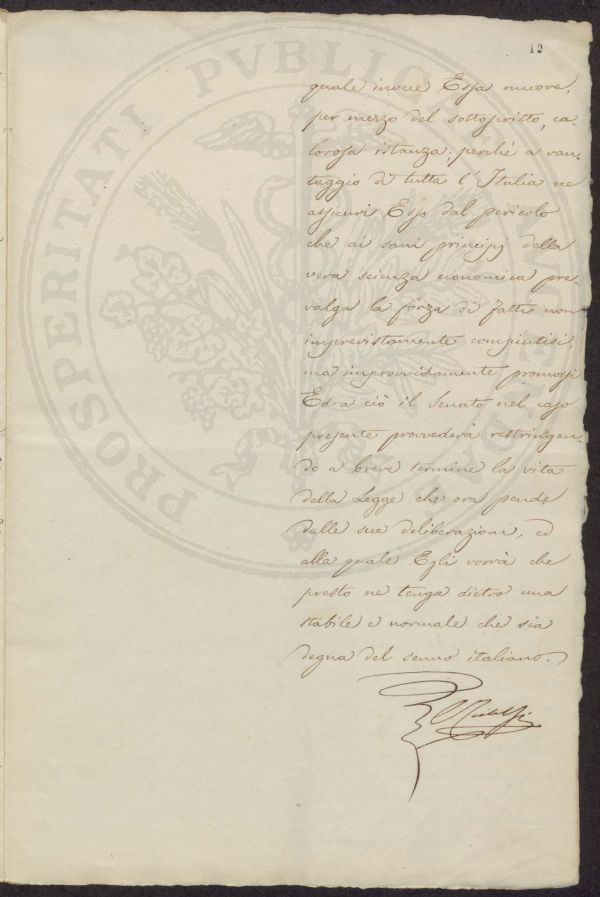 12
quale invece Essa muove,
per mezzo del sottoscritto, ca-
lorosa istanza, perchè a van-
taggio di tutta l'Italia ne
assicuri Esso dal pericolo
che ai sani principj della
vera scienza economica pre-
valga la forza di fatti non
imprevistamente compiutisi,
ma improvvidamente promossi
Ed a ciò il Senato nel caso
presente provvederà restringen-
do a breve termine la vita
della Legge che ora pende
dalle sue deliberazioni, ed
alla quale Egli vorrà che
presto ne tenga dietro una
stabile e normale che sia
degna del senno italiano.
PROSPERITATI PVBLICAE